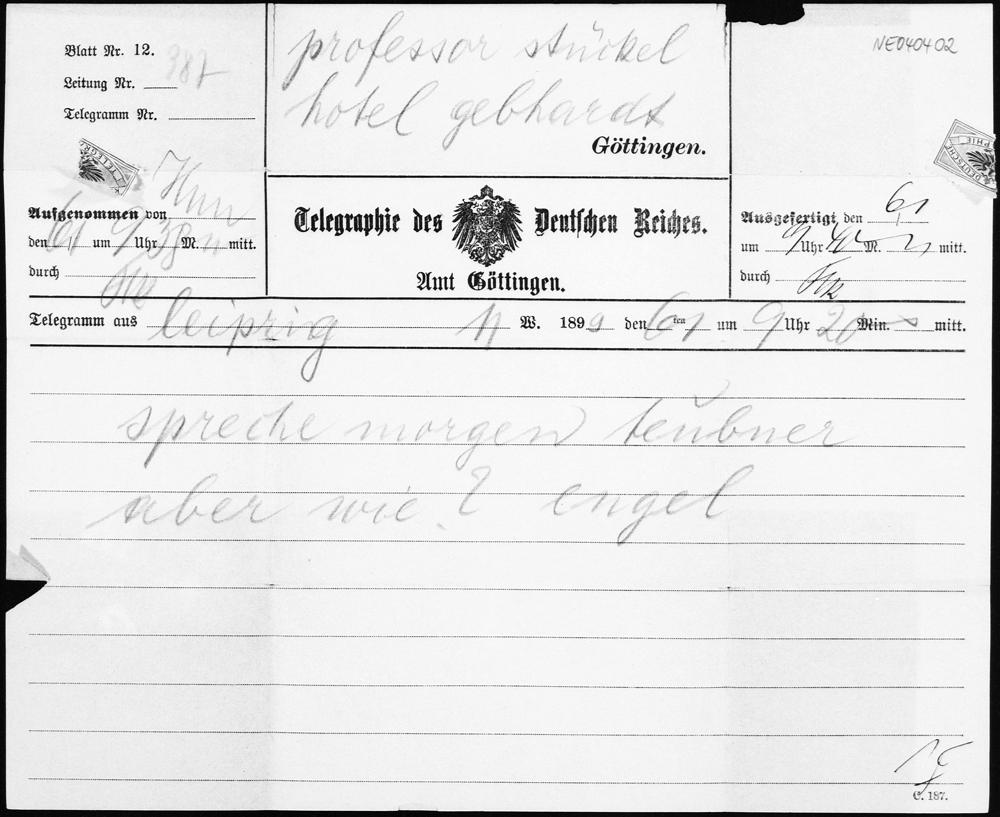 Blatt Nr. 12.
387
Leitung Nr.
Telegramm Nr.
professor stückel
hotel gebhardt
Göttingen.
NE040402
TELEGR
DEUTSCHE
PHIE
Aufgenommen von
den 6/1 um 9 Uhr 38 M. mitt.
durch
Telegraphie des Deutschen Reiches.
Amt Göttingen.
Ausgefertigt den 6/1
um 9 Uhr M. mitt.
durch
Telegramm aus leipzig 11 W. 1899 den 6/1 ten um 9 Uhr 20 Min. mitt.
spreche morgen teubner
aber wie? engel
C. 187.